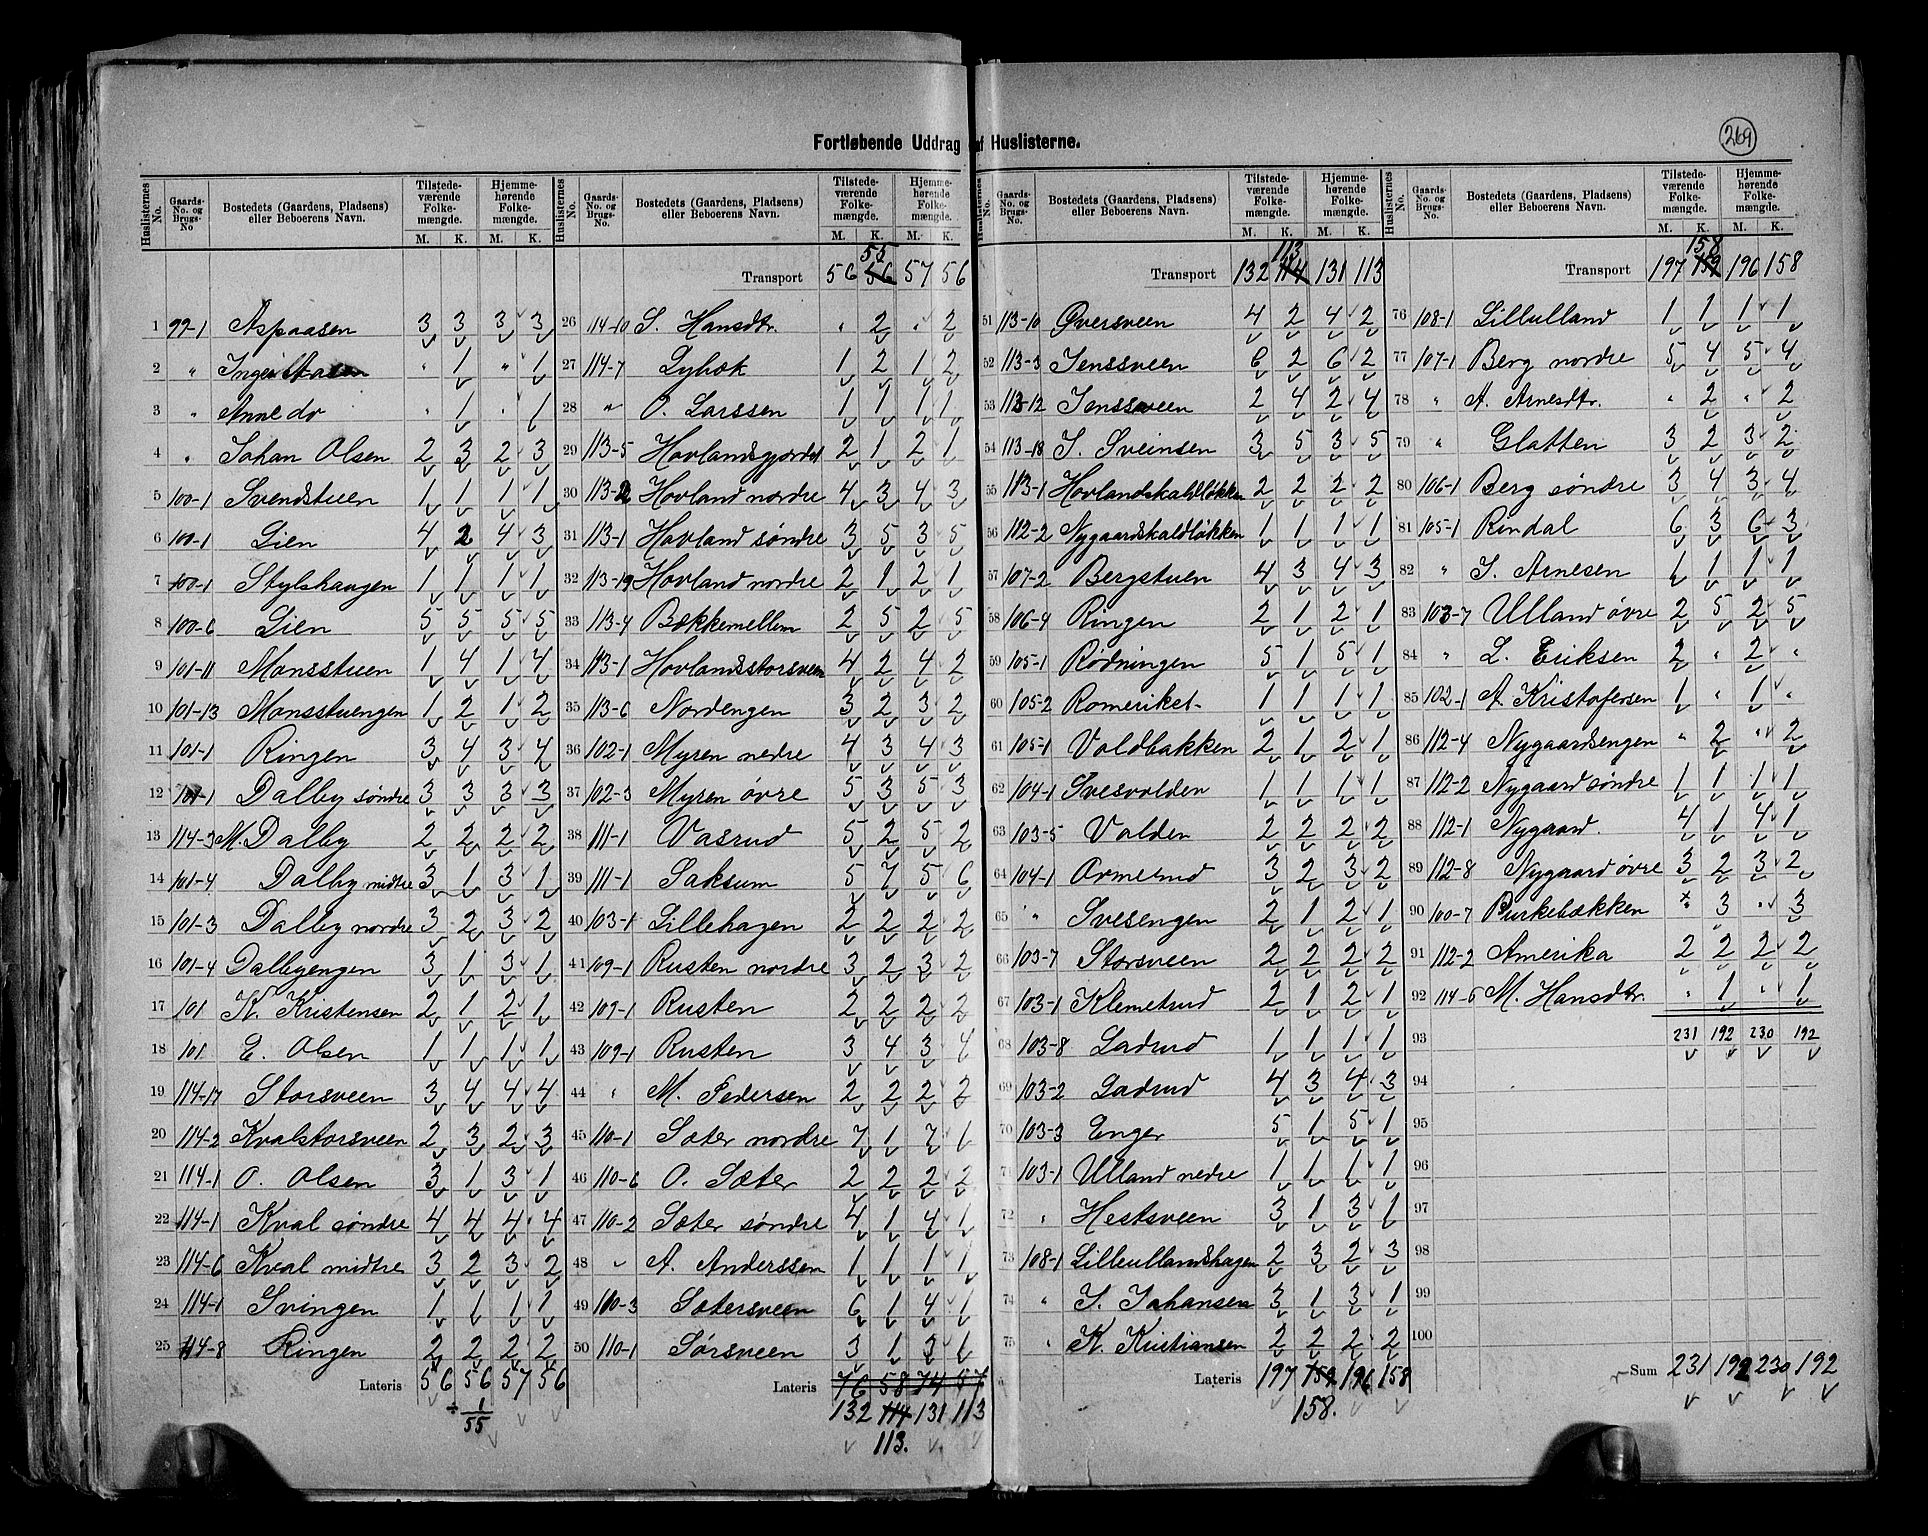 Fortløbende Uddrag af Huslisterne.
269
Huslisternes No. | Gaards-No. og Brugs-No | Bostedets (Gaardens, Pladsens) eller Beboerens Navn. | Tilstedeværende Folkemængde. M. K. | Hjemmehørende Folkemængde. M. K.
1 99-1 Aspaasen 3 3 3 3
2 " Inger 1 " 1
3 " Anne do " 1 " 1
4 " Johan Olsen 2 3 2 3
5 100-1 Svendstuen 1 1 1 1
6 100-1 Lien 4 2 4 3
7 100-1 Stylshaugen 1 1 1 1
8 100-6 Lien 5 5 5 5
9 101-11 Mansstuen 1 4 1 4
10 101-13 Mansstuengen 1 2 1 2
11 101-1 Ringen 3 4 3 4
12 101-1 Dalby søndre 3 3 3 3
13 114-3 M. Dalby 2 2 2 2
14 101-4 Dalby midtre 3 1 3 1
15 101-3 Dalby nordre 3 2 3 2
16 101-4 Dalbyengen 3 1 3 1
17 101 K. Kristensen 2 1 2 1
18 101 E. Olsen 1 1 1 1
19 114-17 Storsveen 3 4 4 4
20 114-2 Kvalstorsveen 2 3 2 3
21 114-1 O. Olsen 3 1 3 1
22 114-1 Kval søndre 4 4 4 4
23 114-6 Kval midtre 3 2 3 2
24 114-1 Svingen 1 1 1 1
25 114-8 Ringen 2 2 2 2
Lateris 56 56 57 56
÷ 1
55
Huslisternes No. | Gaards-No. og Brugs-No. | Bostedets (Gaardens, Pladsens) eller Beboerens Navn. | Tilstedeværende Folkemængde. M. K. | Hjemmehørende Folkemængde. M. K.
55
Transport 56 56 57 56
26 114-10 S. Hansdtr. " 2 " 2
27 114-7 Lybæk 1 2 1 2
28 " O. Larssen 1 1 1 1
29 113-5 Hovlandsgjordet 2 1 2 1
30 113-2 Hovland nordre 4 3 4 3
31 113-1 Hovland søndre 3 5 3 5
32 113-19 Hovland nordre 2 1 2 1
33 113-4 Bækkemellem 2 5 2 5
34 113-1 Hovlandsstorsveen 4 2 4 2
35 113-6 Nordengen 3 2 3 2
36 102-1 Myren nedre 4 3 4 3
37 102-3 Myren øvre 5 3 5 3
38 111-1 Vasrud 5 2 5 2
39 111-1 Saksum 5 7 5 6
40 103-1 Lillehagen 2 2 2 2
41 109-1 Rusten nordre 3 2 3 2
42 109-1 Rusten 2 2 2 2
43 109-1 Rusten 3 4 3 4
44 " M. Pedersen 2 2 2 2
45 110-1 Sæter nordre 7 1 7 1
46 110-6 O. Sæter 2 2 2 2
47 110-2 Sæter søndre 4 1 4 1
48 " A. Anderssen 1 1 1 1
49 110-3 Sætersveen 6 1 4 1
50 110-1 Sørsveen 3 1 3 1
Lateris 76 58 74 57
132 114 131 113
113.
No. | Gaards-No. og Brugs-No. | Bostedets (Gaardens, Pladsens) eller Beboerens Navn. | Tilstedeværende Folkemængde. M. K. | Hjemmehørende Folkemængde. M. K.
113
Transport 132 114 131 113
51 113-10 Øversveen 4 2 4 2
52 113-3 Jenssveen 6 2 6 2
53 113-12 Jenssveen 2 4 2 4
54 113-18 J. Sveinsen 3 5 3 5
55 113-1 Hovlandskaldløkken 2 2 2 2
56 112-2 Nygaardskaldløkken 1 1 1 1
57 107-2 Bergstuen 4 3 4 3
58 106-4 Ringen 2 1 2 1
59 105-1 Rødningen 5 1 5 1
60 105-2 Romeriket 1 1 1 1
61 105-1 Voldbakken 2 1 2 1
62 104-1 Svesvolden 1 1 1 1
63 103-5 Volden 2 2 2 2
64 104-1 Ormerud 3 2 3 2
65 " Svesengen 2 1 2 1
66 103-7 Storsveen 2 2 2 2
67 103-1 Klemetrud 2 1 2 1
68 103-8 Ladrud 1 1 1 1
69 103-2 Ladrud 4 3 4 3
70 103-3 Enger 5 1 5 1
71 103-1 Ulland nedre 1 1 1 1
72 " Hestsveen 3 1 3 1
73 108-1 Lilleullandshagen 2 3 2 3
74 " J. Johansen 3 1 3 1
75 " K. Kristiansen 2 2 2 2
Lateris 197 159 196 158
158.
Huslisternes No. | Gaards-No. og Brugs-No. | Bostedets (Gaardens, Pladsens) eller Beboerens Navn. | Tilstedeværende Folkemængde. M. K. | Hjemmehørende Folkemængde. M. K.
158
Transport 197 159 196 158
76 108-1 Lillulland 1 1 1 1
77 107-1 Berg nordre 5 4 5 4
78 " A. Arnesdtr. " 2 " 2
79 " Glatten 3 2 3 2
80 106-1 Berg søndre 3 4 3 4
81 105-1 Rindal 6 3 6 3
82 " J. Arnesen 1 1 1 1
83 103-7 Ulland øvre 2 5 2 5
84 " L. Eriksen 2 " 2 "
85 102-1 A. Kristofersen 1 " 1 "
86 112-4 Nygaardsengen " 2 " 2
87 112-2 Nygaard søndre 1 1 1 1
88 112-1 Nygaard. 4 1 4 1
89 112-8 Nygaard øvre 3 2 3 2
90 100-7 Burkebækken " 3 " 3
91 112-2 Amerika 2 2 2 2
92 114-6 M. Hansdtr. " 1 " 1
93 231 192 230 192
94
95
96
97
98
99
100
Sum 231 192 230 192